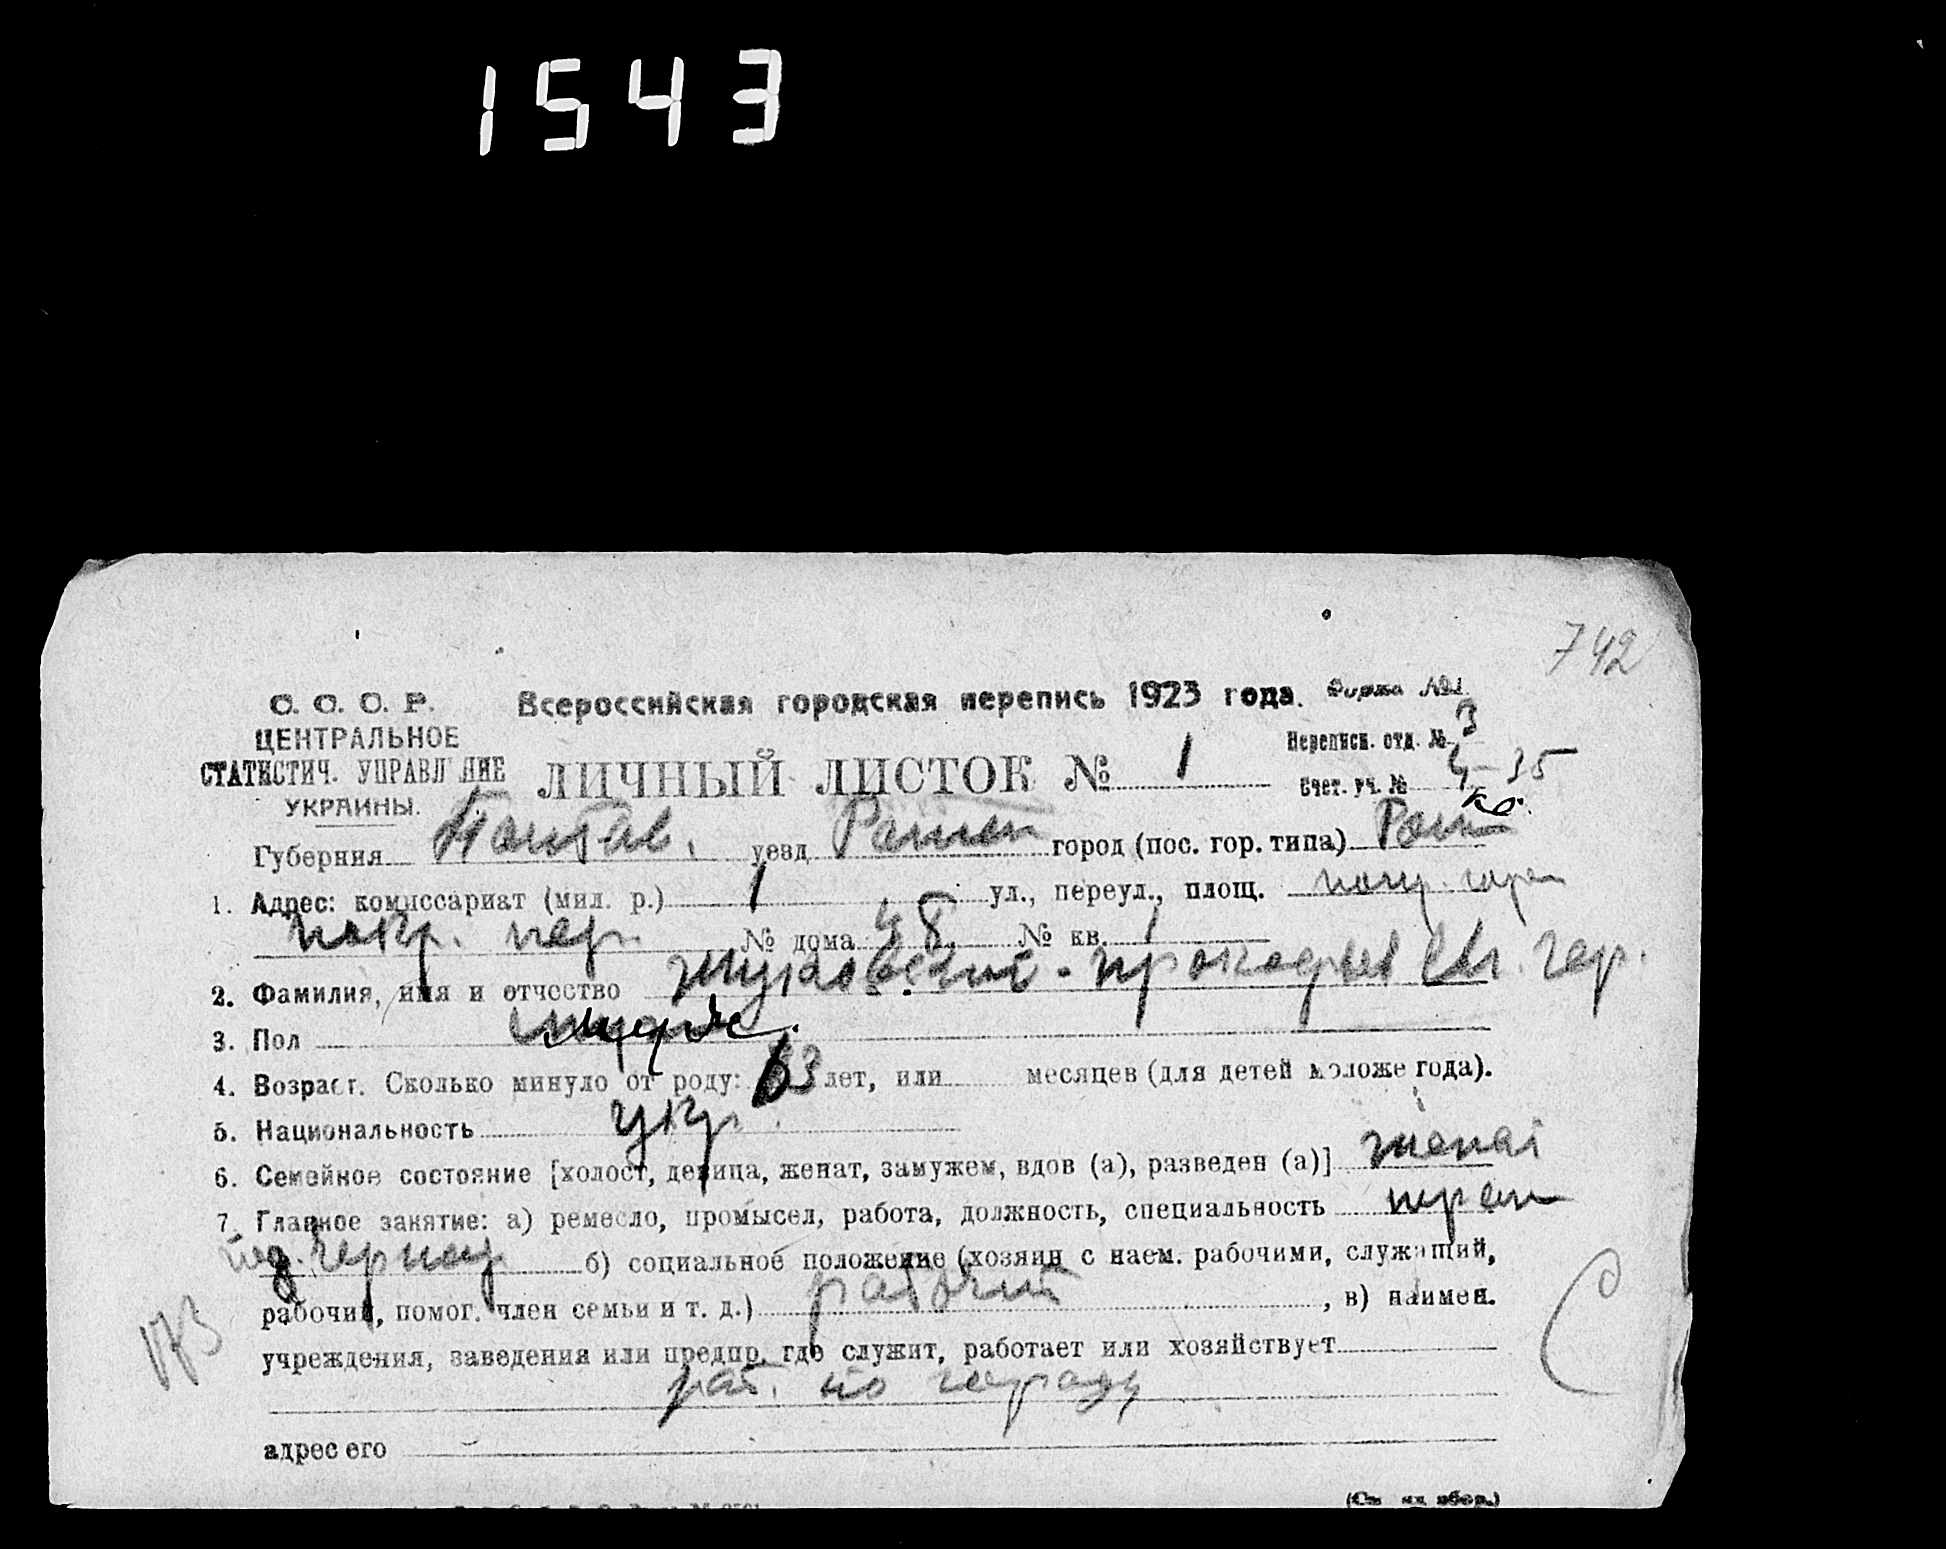 1543
742
С. С. С. Р.
ЦЕНТРАЛЬНОЕ
СТАТИСТИЧ. УПРАВЛЕНИЕ
УКРАИНЫ.
Всероссийская городская перепись 1923 года. Форма №1.
ЛИЧНЫЙ ЛИСТОК № 1
Переписн. отд. № 3
Счет. уч. № 35
Губерния Полтав. уезд Ромен город (пос. гор. типа) Ром
1. Адрес: комиссариат (мил. р.) 1 ул., переул., площ.
покр. пер. № дома 48 № кв. 1
2. Фамилия, имя и отчество Жуковский - Прокофий
3. Пол муж.
4. Возраст. Сколько минуло от роду: 63 лет, или месяцев (для детей моложе года).
5. Национальность укр.
6. Семейное состояние [холост, девица, женат, замужем, вдов (а), разведен (а)] женат
7. Главное занятие: а) ремесло, промысел, работа, должность, специальность
б) социальное положение (хозяин с наем. рабочими, служащий,
рабочий, помог. член семьи и т. д.) рабочий, в) наимен.
учреждения, заведения или предпр. где служит, работает или хозяйствует
раб. по городу
адрес его
173
(См. на обор.)